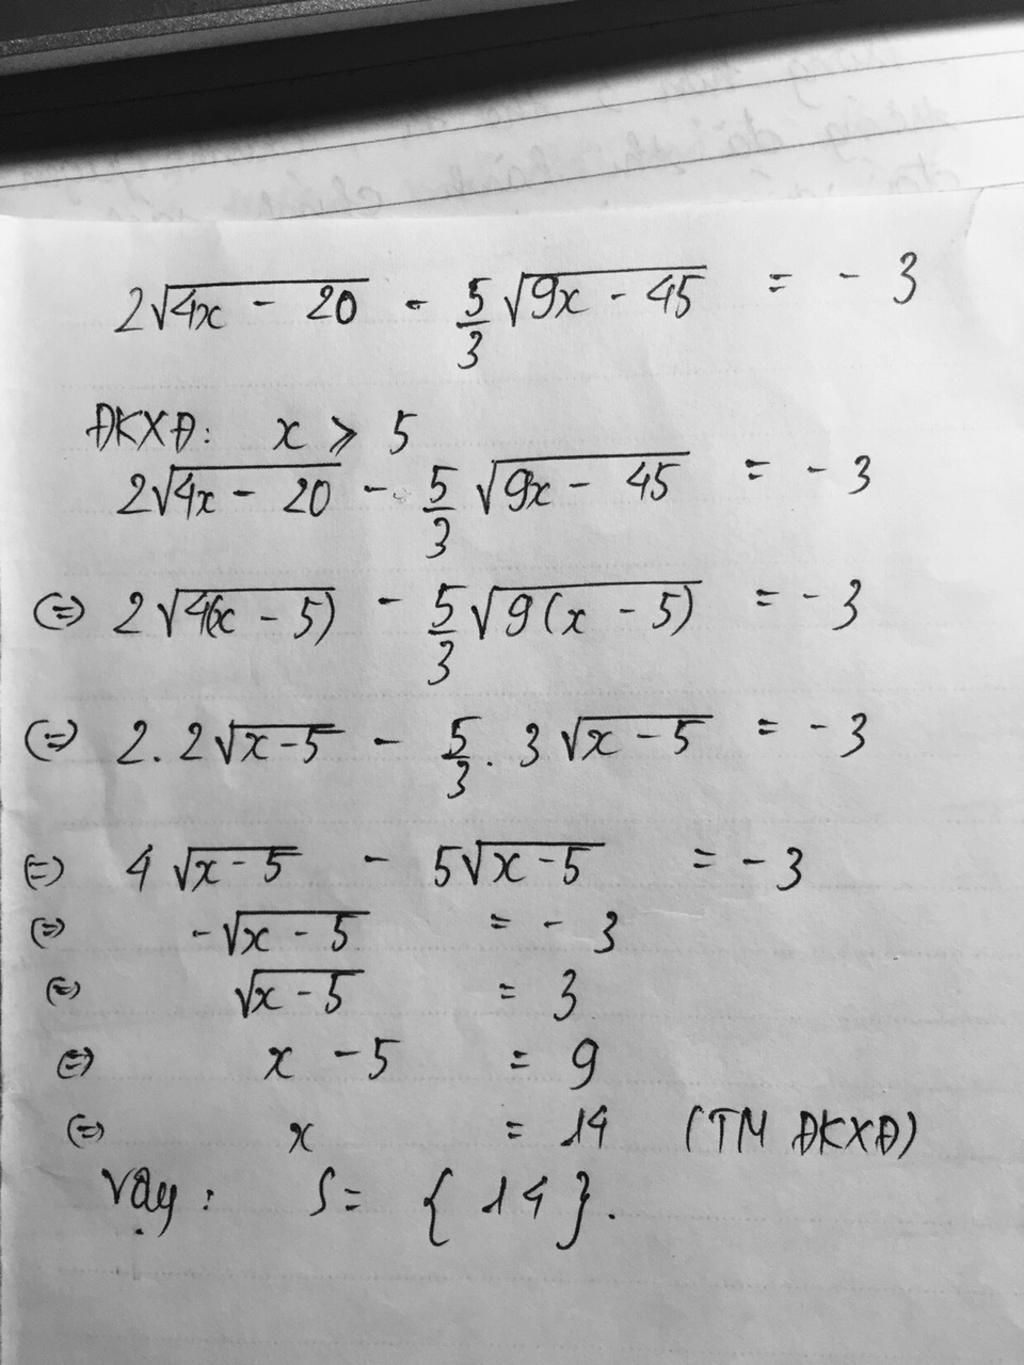 2√(4x - 20) - 5/3 √(9x - 45) = - 3
ĐKXĐ: x ⩾ 5
2√(4x - 20) - 5/3 √(9x - 45) = - 3
(=) 2√(4(x - 5)) - 5/3 √(9(x - 5)) = - 3
(=) 2. 2√(x - 5) - 5/3 . 3√(x - 5) = - 3
(=) 4√(x - 5) - 5√(x - 5) = - 3
(=) -√(x - 5) = - 3
(=) √(x - 5) = 3
(=) x - 5 = 9
(=) x = 14 (TM ĐKXĐ)
Vậy: S = { 14 }.